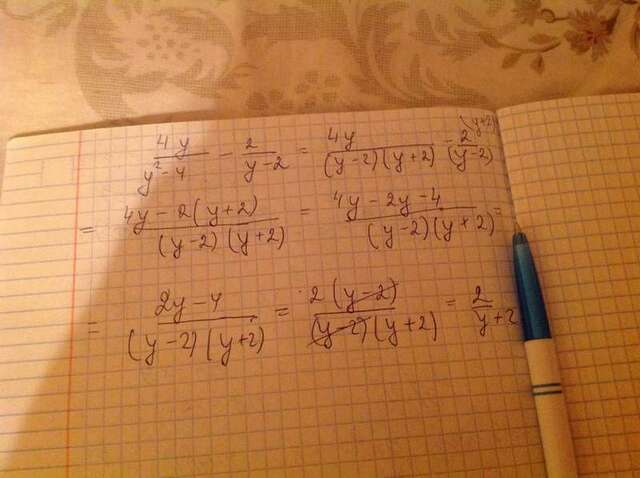 4y/(y²-4) - 2/(y-2) = 4y/((y-2)(y+2)) - 2/(y-2) (y+2)
= (4y-2(y+2))/((y-2)(y+2)) = (4y-2y-4)/((y-2)(y+2)) =
= (2y-4)/((y-2)(y+2)) = 2(y-2)/((y-2)(y+2)) = 2/(y+2)